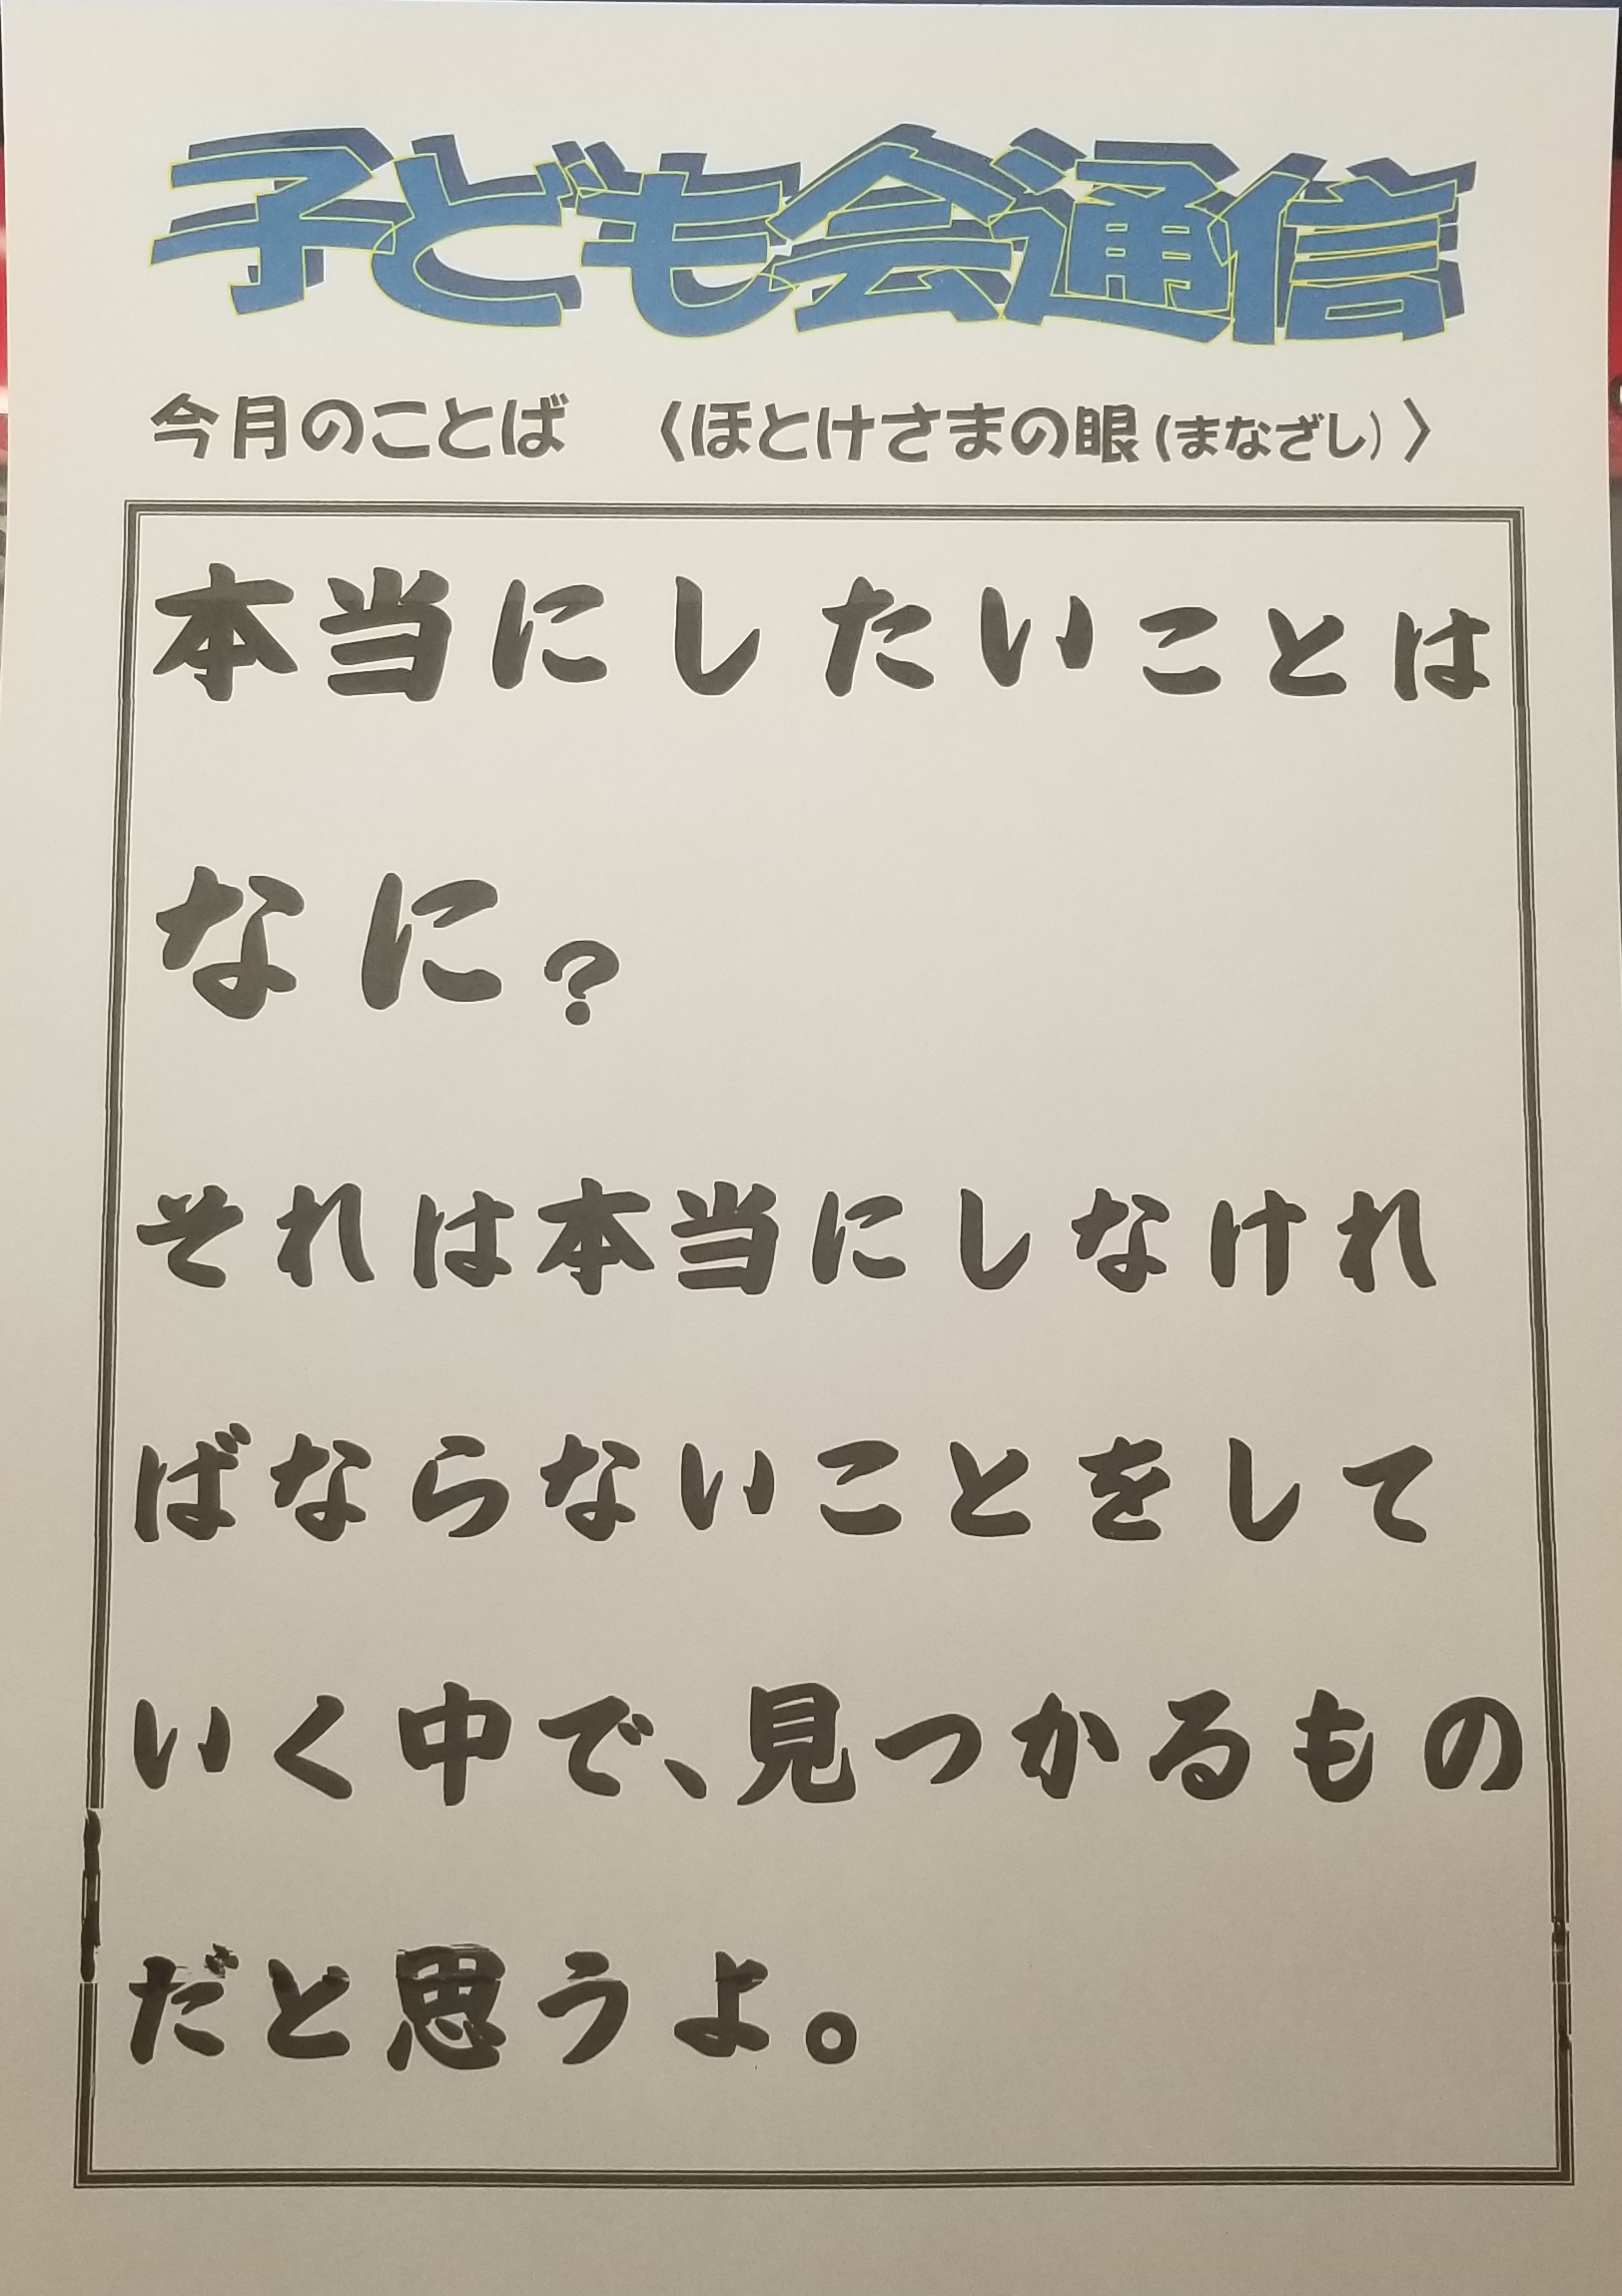 子ども会通信
今月のことば　〈ほとけさまの眼(まなざし)〉
本当にしたいことは
なに?
それは本当にしなけれ
ばならないことをして
いく中で、見つかるもの
だと思うよ。